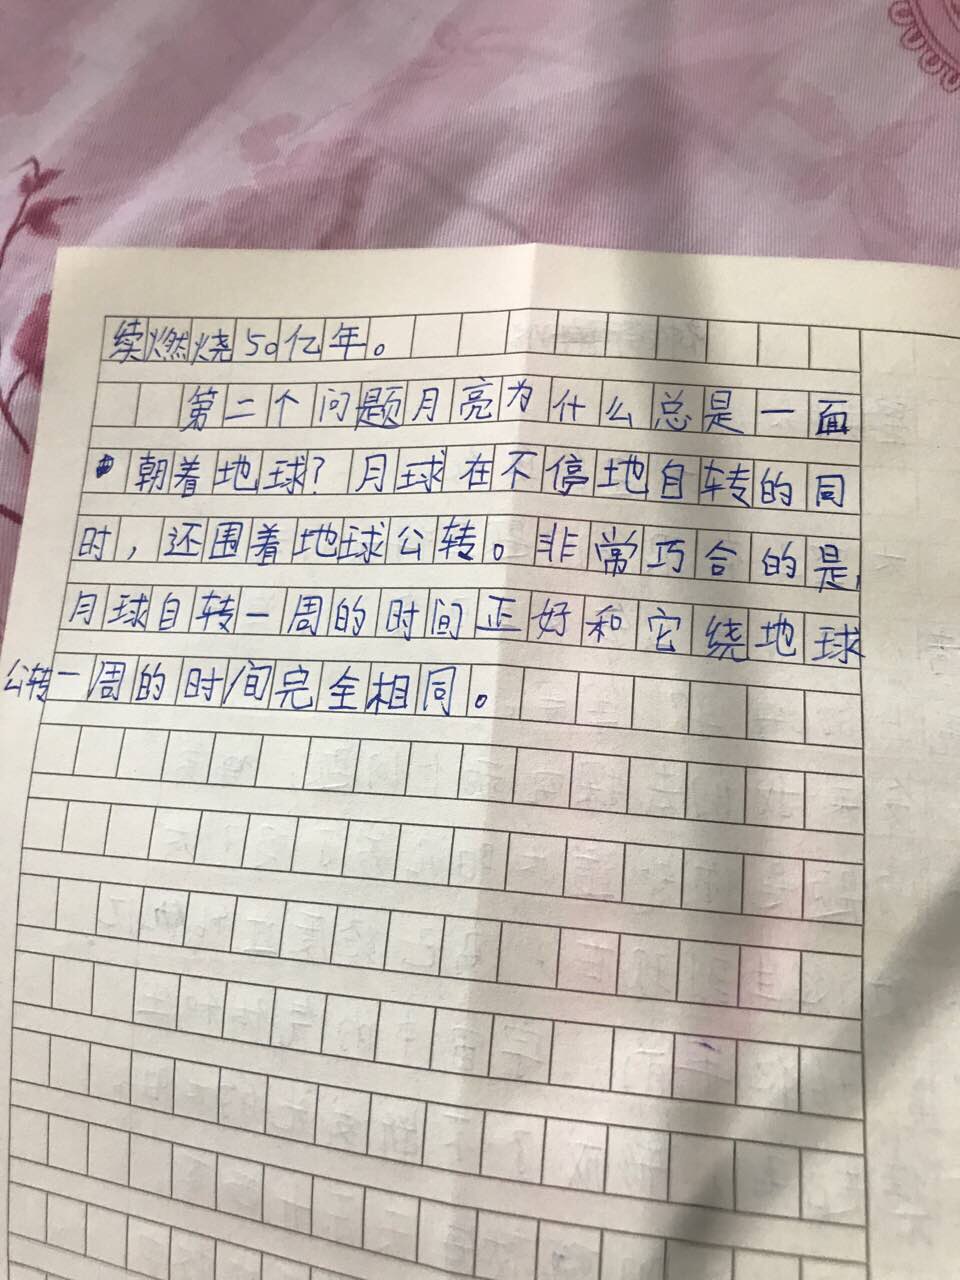 续燃烧50亿年。
第二个问题月亮为什么总是一面
朝着地球？月球在不停地自转的同
时，还围着地球公转。非常巧合的是，
月球自转一周的时间正好和它绕地球
公转一周的时间完全相同。